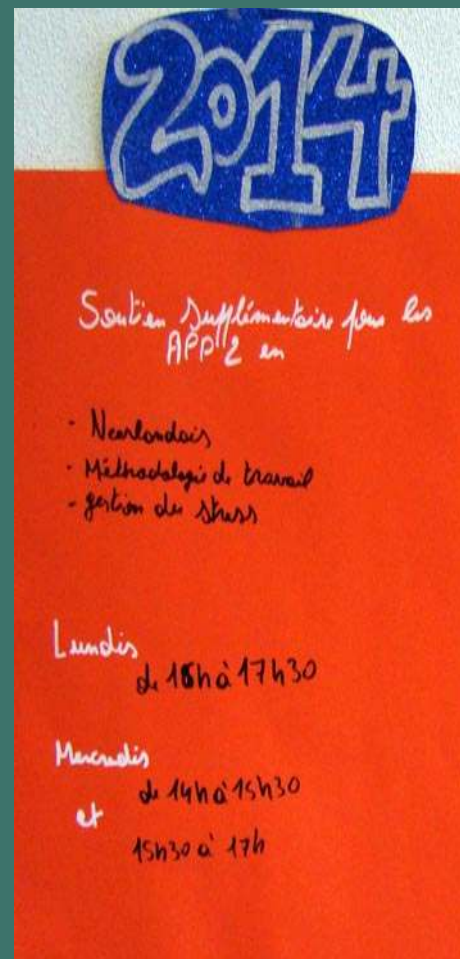 2014
Soutien Supplémentaire pour les
APP 2 en
- Neerlandais
- Méthodologie de travail
- gestion du stress
Lundis
de 16h à 17h30
Mercredis
de 14h à 15h30
et
15h30 à 17h